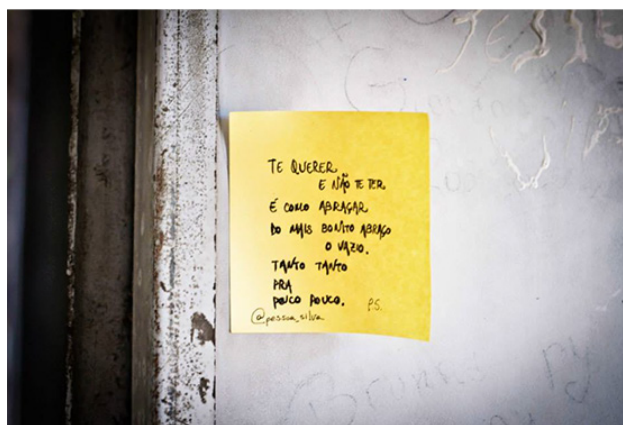 TE QUERER
E NÃO TE TER
É COMO ABRAÇAR
DO MAIS BONITO ABRAÇO
O VAZIO.
TANTO TANTO
PRA
POUCO POUCO. P.S.
@pessoa_silva
JESSE